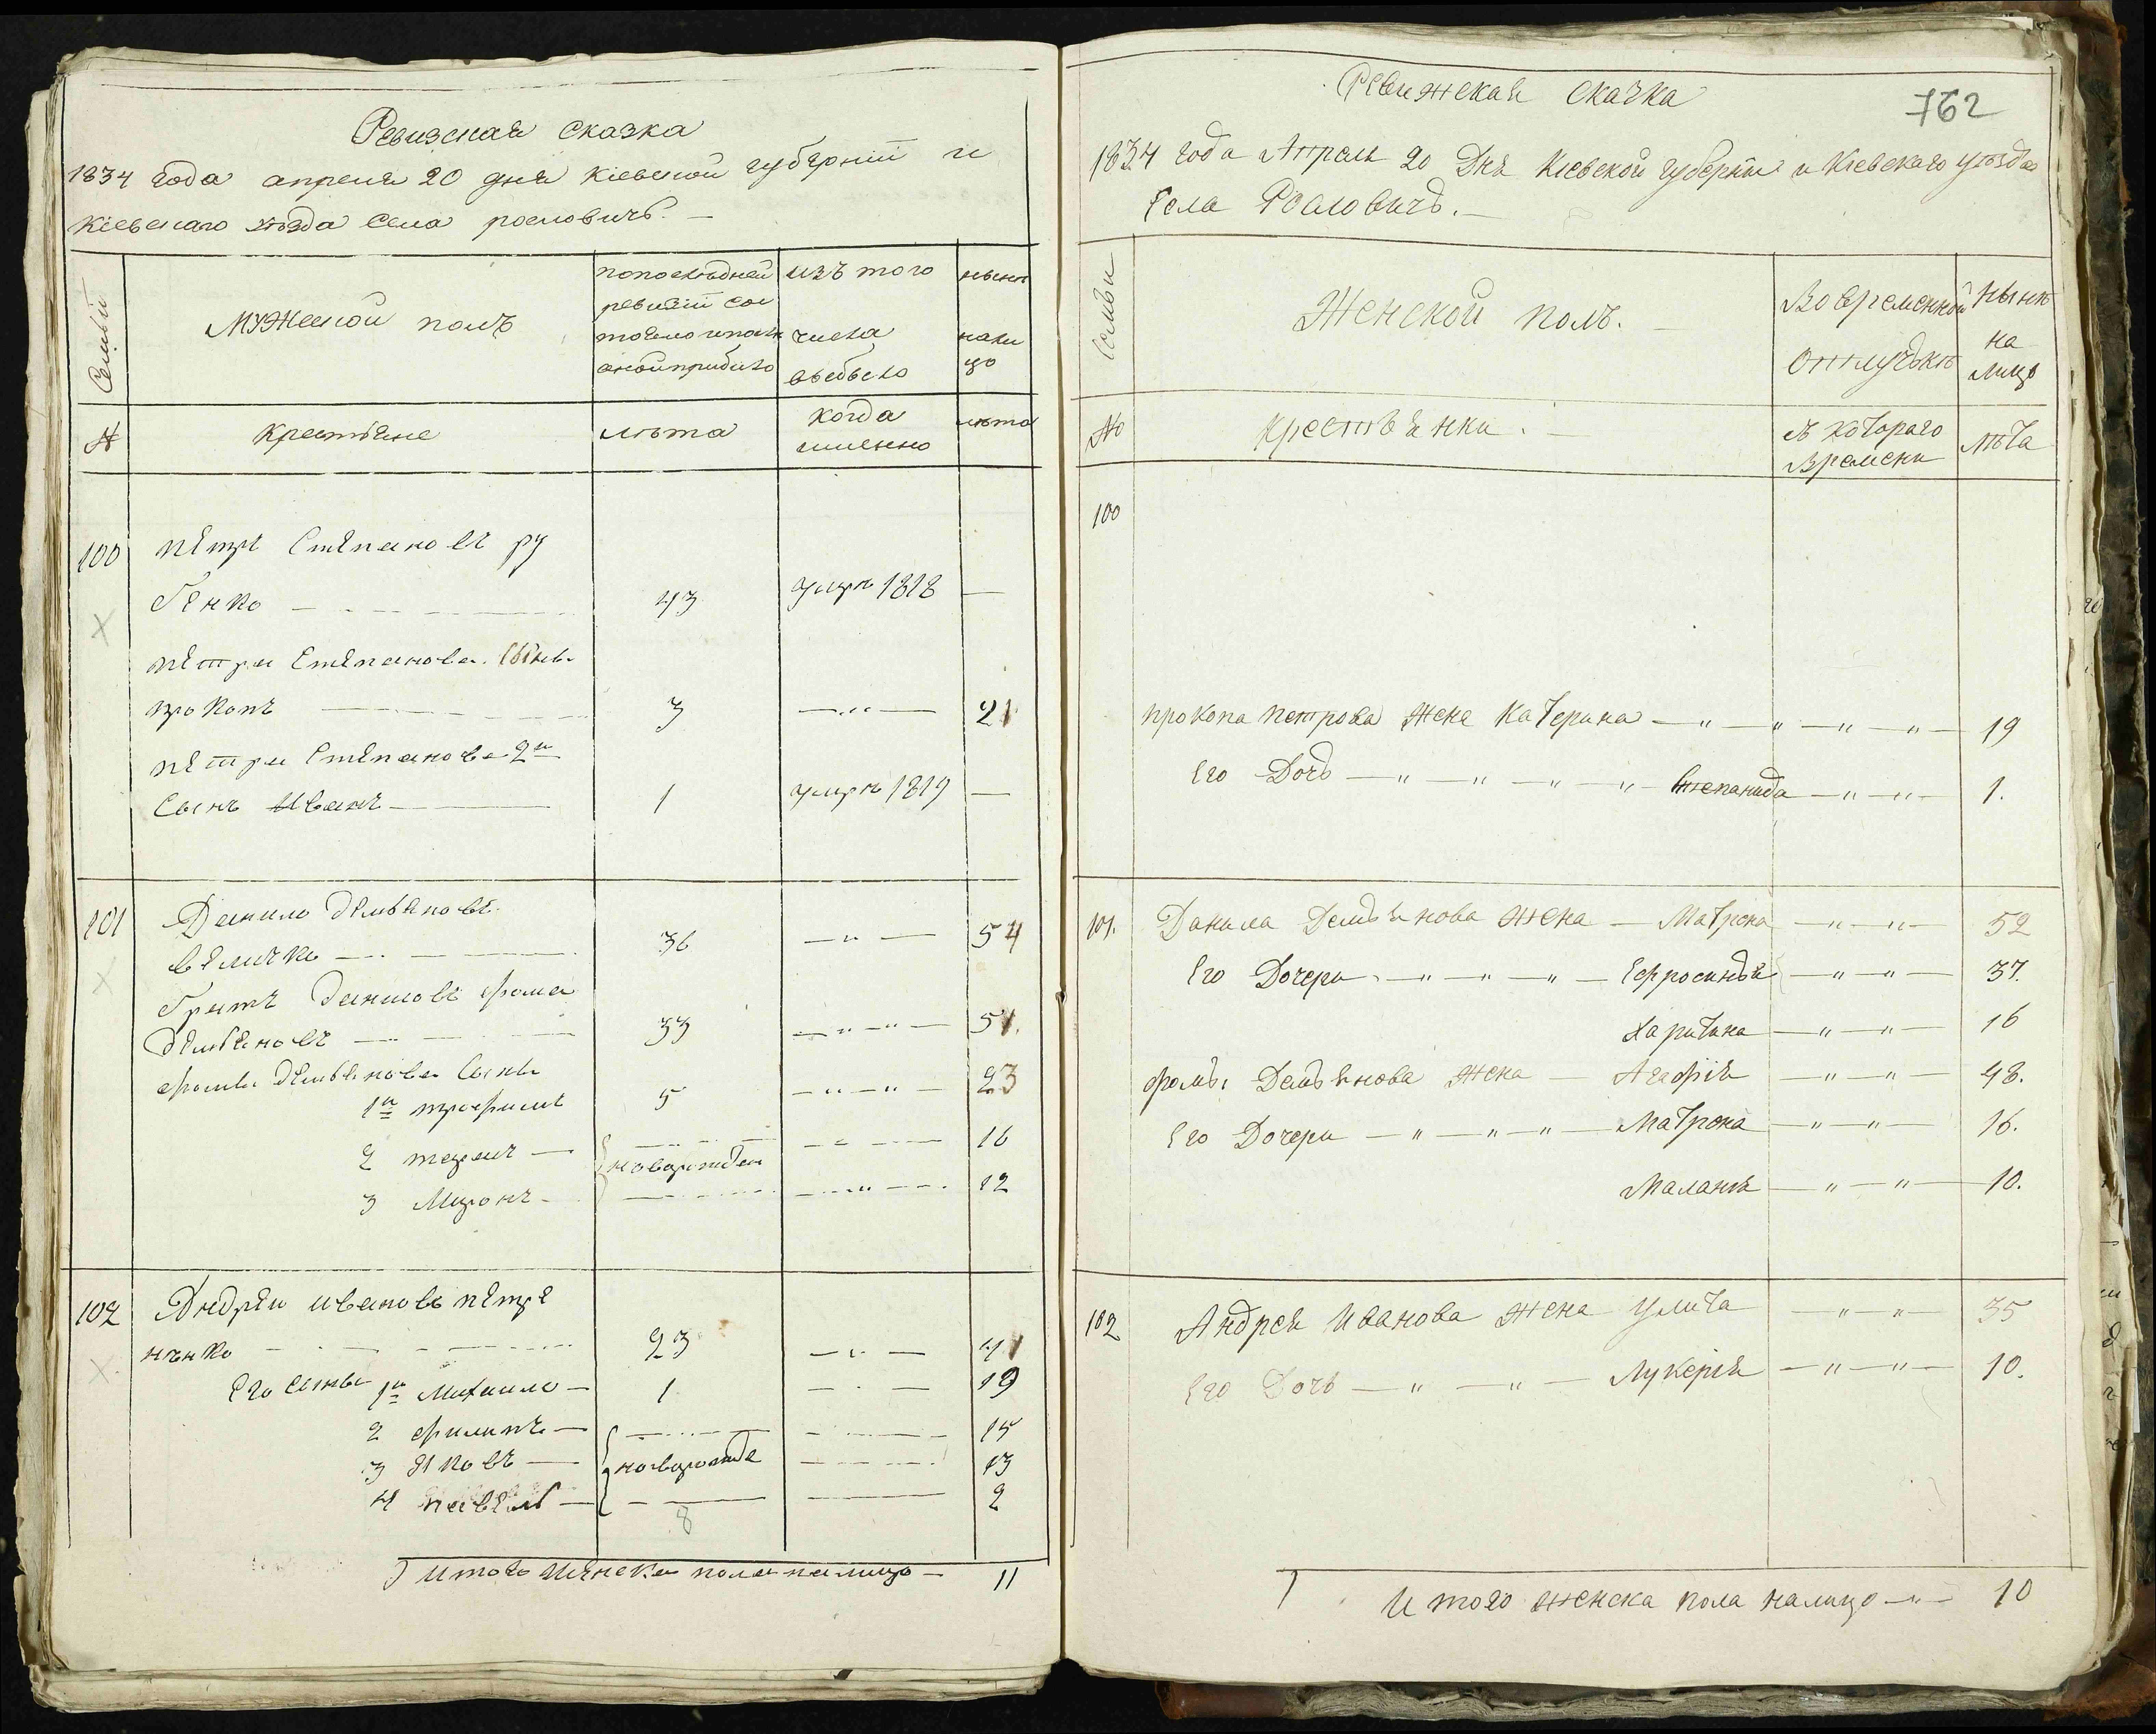 Ревизская сказка
1834 года апреля 20 дня Кіевской губерніи и
Кіевскаго уѣзда Села рословичъ. —
Семьи
Мужеской полъ
попослѣдней
ревизіи сос
тояло и посл
оной прибыло
изъ того
числа
выбыло
нынѣ
нали
цо
№
Крестьяне
лѣта
когда
именно
лѣта
100
Петръ Степановъ ру
бенко
43
умръ 1818
—
Петра Степанова Сынъ
прокопъ
3
21
Петра Степанова 2й
Сынъ Иванъ
1
умръ 1819
—
101
Данило Демьяновъ
величко
36
54
братъ Данилова фома
Демьяновъ
33
51.
фомы Демьянова Сыны
1й трофимъ
5
23
2 терент
новорожден
16
3 Миронъ
12
102
Андрей ивановъ петре
нѣнко
23
41
Его Сыны 1й Михаило
1
19
2 филипъ
15
3 Яковъ
новорожде
13
4 павелъ
2
8
Итого Мѣнска пола налицо — 11
Ревижская Скачка
762
1834 года Апреля 20 Дня Кіевской губерніи и Кіевскаго уѣзда
Села Рословичъ. —
Семьи
Женской полъ. —
Во временной
отлучкѣ
Нынѣ
на
лицо
№
Крестьянки. —
съ котораго
Времени
лѣта
100
прокопа Петрова Жена Катерина — " — " — " — " — 19
Его Дочь — " — " — " — " — Степанида — " — " — 1.
101.
Данила Демьянова Жена — Матрона — " — " — 52
Его Дочери — " — " — " — Ефросинья — " — " — 37.
Харитина — " — " — 16
фомы Демьянова Жена — Агафія — " — " — 48.
Его Дочери — " — " — " — Матрона — " — " — 16.
Маланя — " — " — 10.
102
Андрея Иванова Жена Улита — " — " — 35
Его Дочь — " — " — Лукерія — " — " — 10.
И того женска пола налицо — " — 10